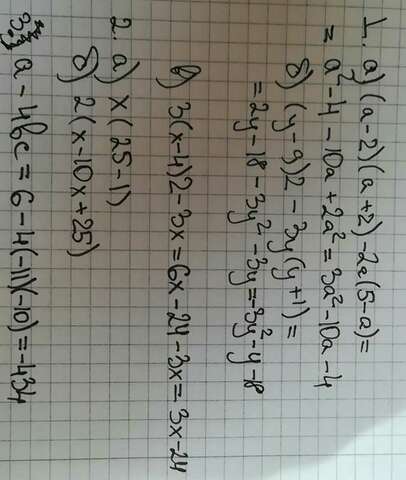 1. а) (a-2)(a+2)-2a(5-a)=
= a²-4-10a+2a²=3a²-10a-4
б) (y-9)2-3y(y+1)=
= 2y-18-3y²-3y=-3y²-y-18
в) 3(x-4)2-3x=6x-24-3x=3x-24
2. а) x(25-1)
б) 2(x-10x+25)
3. a-4bc=6-4(-11)(-10)=-434